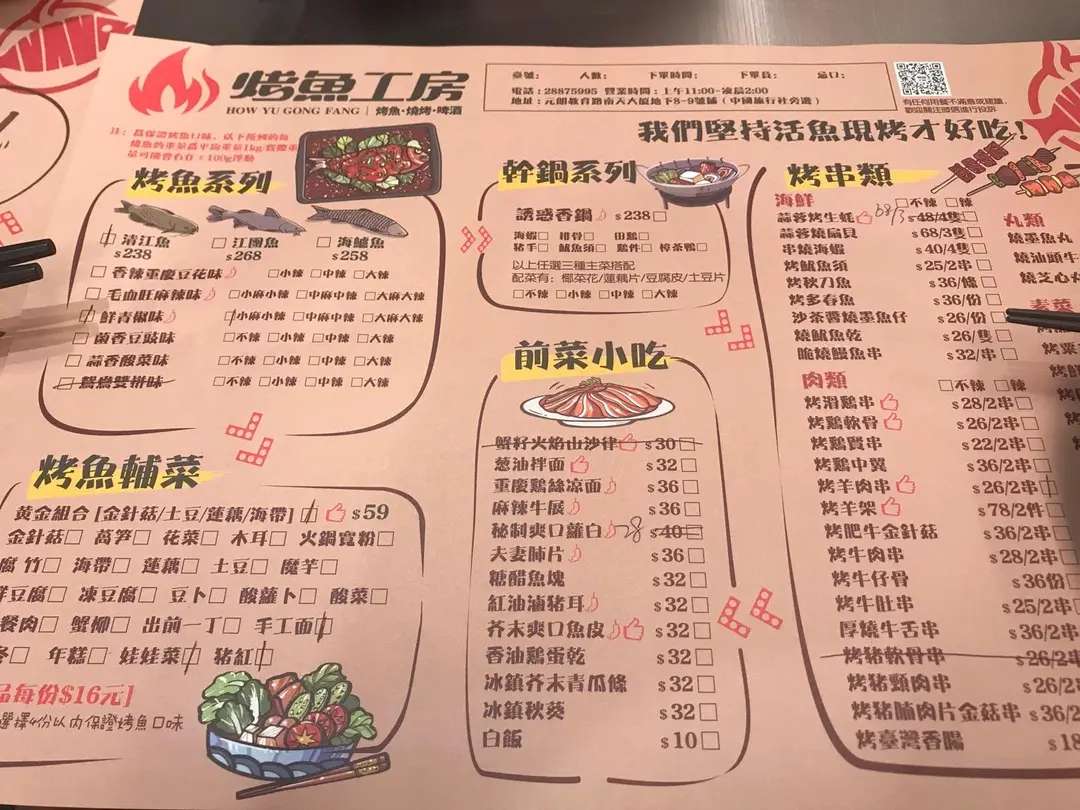 烤魚工房
HOW YU GONG FANG | 烤魚·燒烤·啤酒
臺號： 人數： 下單時間： 下單員： 忌口：
電話：28875995 營業時間：上午11:00-凌晨2:00
地址：元朗教育路南天大廈地下8-9號鋪（中國旅行社旁邊）
有任何用餐不滿意或建議，
歡迎關注微信進行投訴
我們堅持活魚現烤才好吃！
注：爲保證烤魚口味，以下所列的每
量可能會有±100g浮動
烤魚系列
清江魚 $238
江團魚 $268
海鱸魚 $258
香辣重慶豆花味 小辣 中辣 大辣
毛血旺麻辣味 小麻小辣 中麻中辣 大麻大辣
鮮青椒味 小麻小辣 中麻中辣 大麻大辣
菌香豆豉味 不辣 小辣 中辣 大辣
蒜香酸菜味 不辣 小辣 中辣 大辣
鴛鴦雙拼味 不辣 小辣 中辣 大辣
烤魚輔菜
黄金組合 [金針菇/土豆/蓮藕/海帶] $59
金針菇 萵笋 花菜 木耳 火鍋寬粉
腐竹 海帶 蓮藕 土豆 魔芋
豆腐 凍豆腐 豆卜 酸蘿卜 酸菜
餐肉 蟹柳 出前一丁 手工面
年糕 娃娃菜 猪紅
品每份$16元]
選擇4份以内保證烤魚口味
幹鍋系列
誘惑香鍋 $238
海蝦 排骨 田鷄
猪手 魷魚須 鷄件 樟茶鴨
以上任選三種主菜搭配
配菜有：椰菜花/蓮藕片/豆腐皮/土豆片
不辣 小辣 中辣 大辣
前菜小吃
蟹籽火焰山沙律 $30
葱油拌面 $32
重慶鷄絲凉面 $36
麻辣牛展 $36
秘制爽口蘿白 28 $40
夫妻肺片 $36
糖醋魚塊 $32
紅油滷猪耳 $32
芥末爽口魚皮 $32
香油鷄蛋乾 $32
冰鎮芥末青瓜條 $32
冰鎮秋葵 $32
白飯 $10
烤串類
海鮮 不辣 辣
蒜蓉烤生蚝 68/3 $48/4隻
蒜蓉燒扇貝 $68/3隻
串燒海蝦 $40/4隻
烤魷魚須 $25/2串
烤秋刀魚 $36/條
烤多春魚 $36/份
沙茶醬燒墨魚仔 $26/份
燒魷魚乾 $26/隻
脆燒鰻魚串 $32/串
肉類 不辣 辣
烤滑鷄串 $28/2串
烤鷄軟骨 $26/2串
烤鷄腎串 $22/2串
烤鷄中翼 $36/2串
烤羊肉串 $26/2串
烤羊架 $78/2件
烤肥牛金針菇 $36/2串
烤牛肉串 $28/2串
烤牛仔骨 $36份
烤牛肚串 $25/2串
厚燒牛舌串 $36/2串
烤猪軟骨串 $26/2串
烤猪頸肉串 $26/2
烤猪腩肉片金菇串 $36/2
烤臺灣香腸 $18
丸類
燒墨魚丸
燒汕頭牛
燒芝心丸
素菜